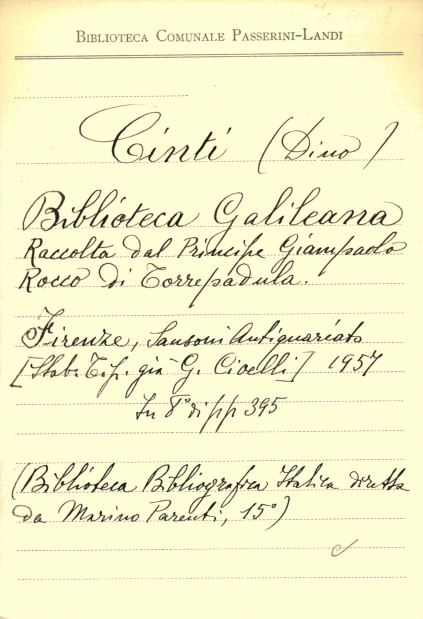 BIBLIOTECA COMUNALE PASSERINI-LANDI
Cinti (Dino)
Biblioteca Galileana
Raccolta dal Principe Giampaolo
Rocco di Torrepadula.
Firenze, Sansoni Antiquariato
[Stab. Tip. già G. Civelli] 1957
In 8° di pp 395
(Biblioteca Bibliografica Italica diretta
da Marino Parenti, 15°)